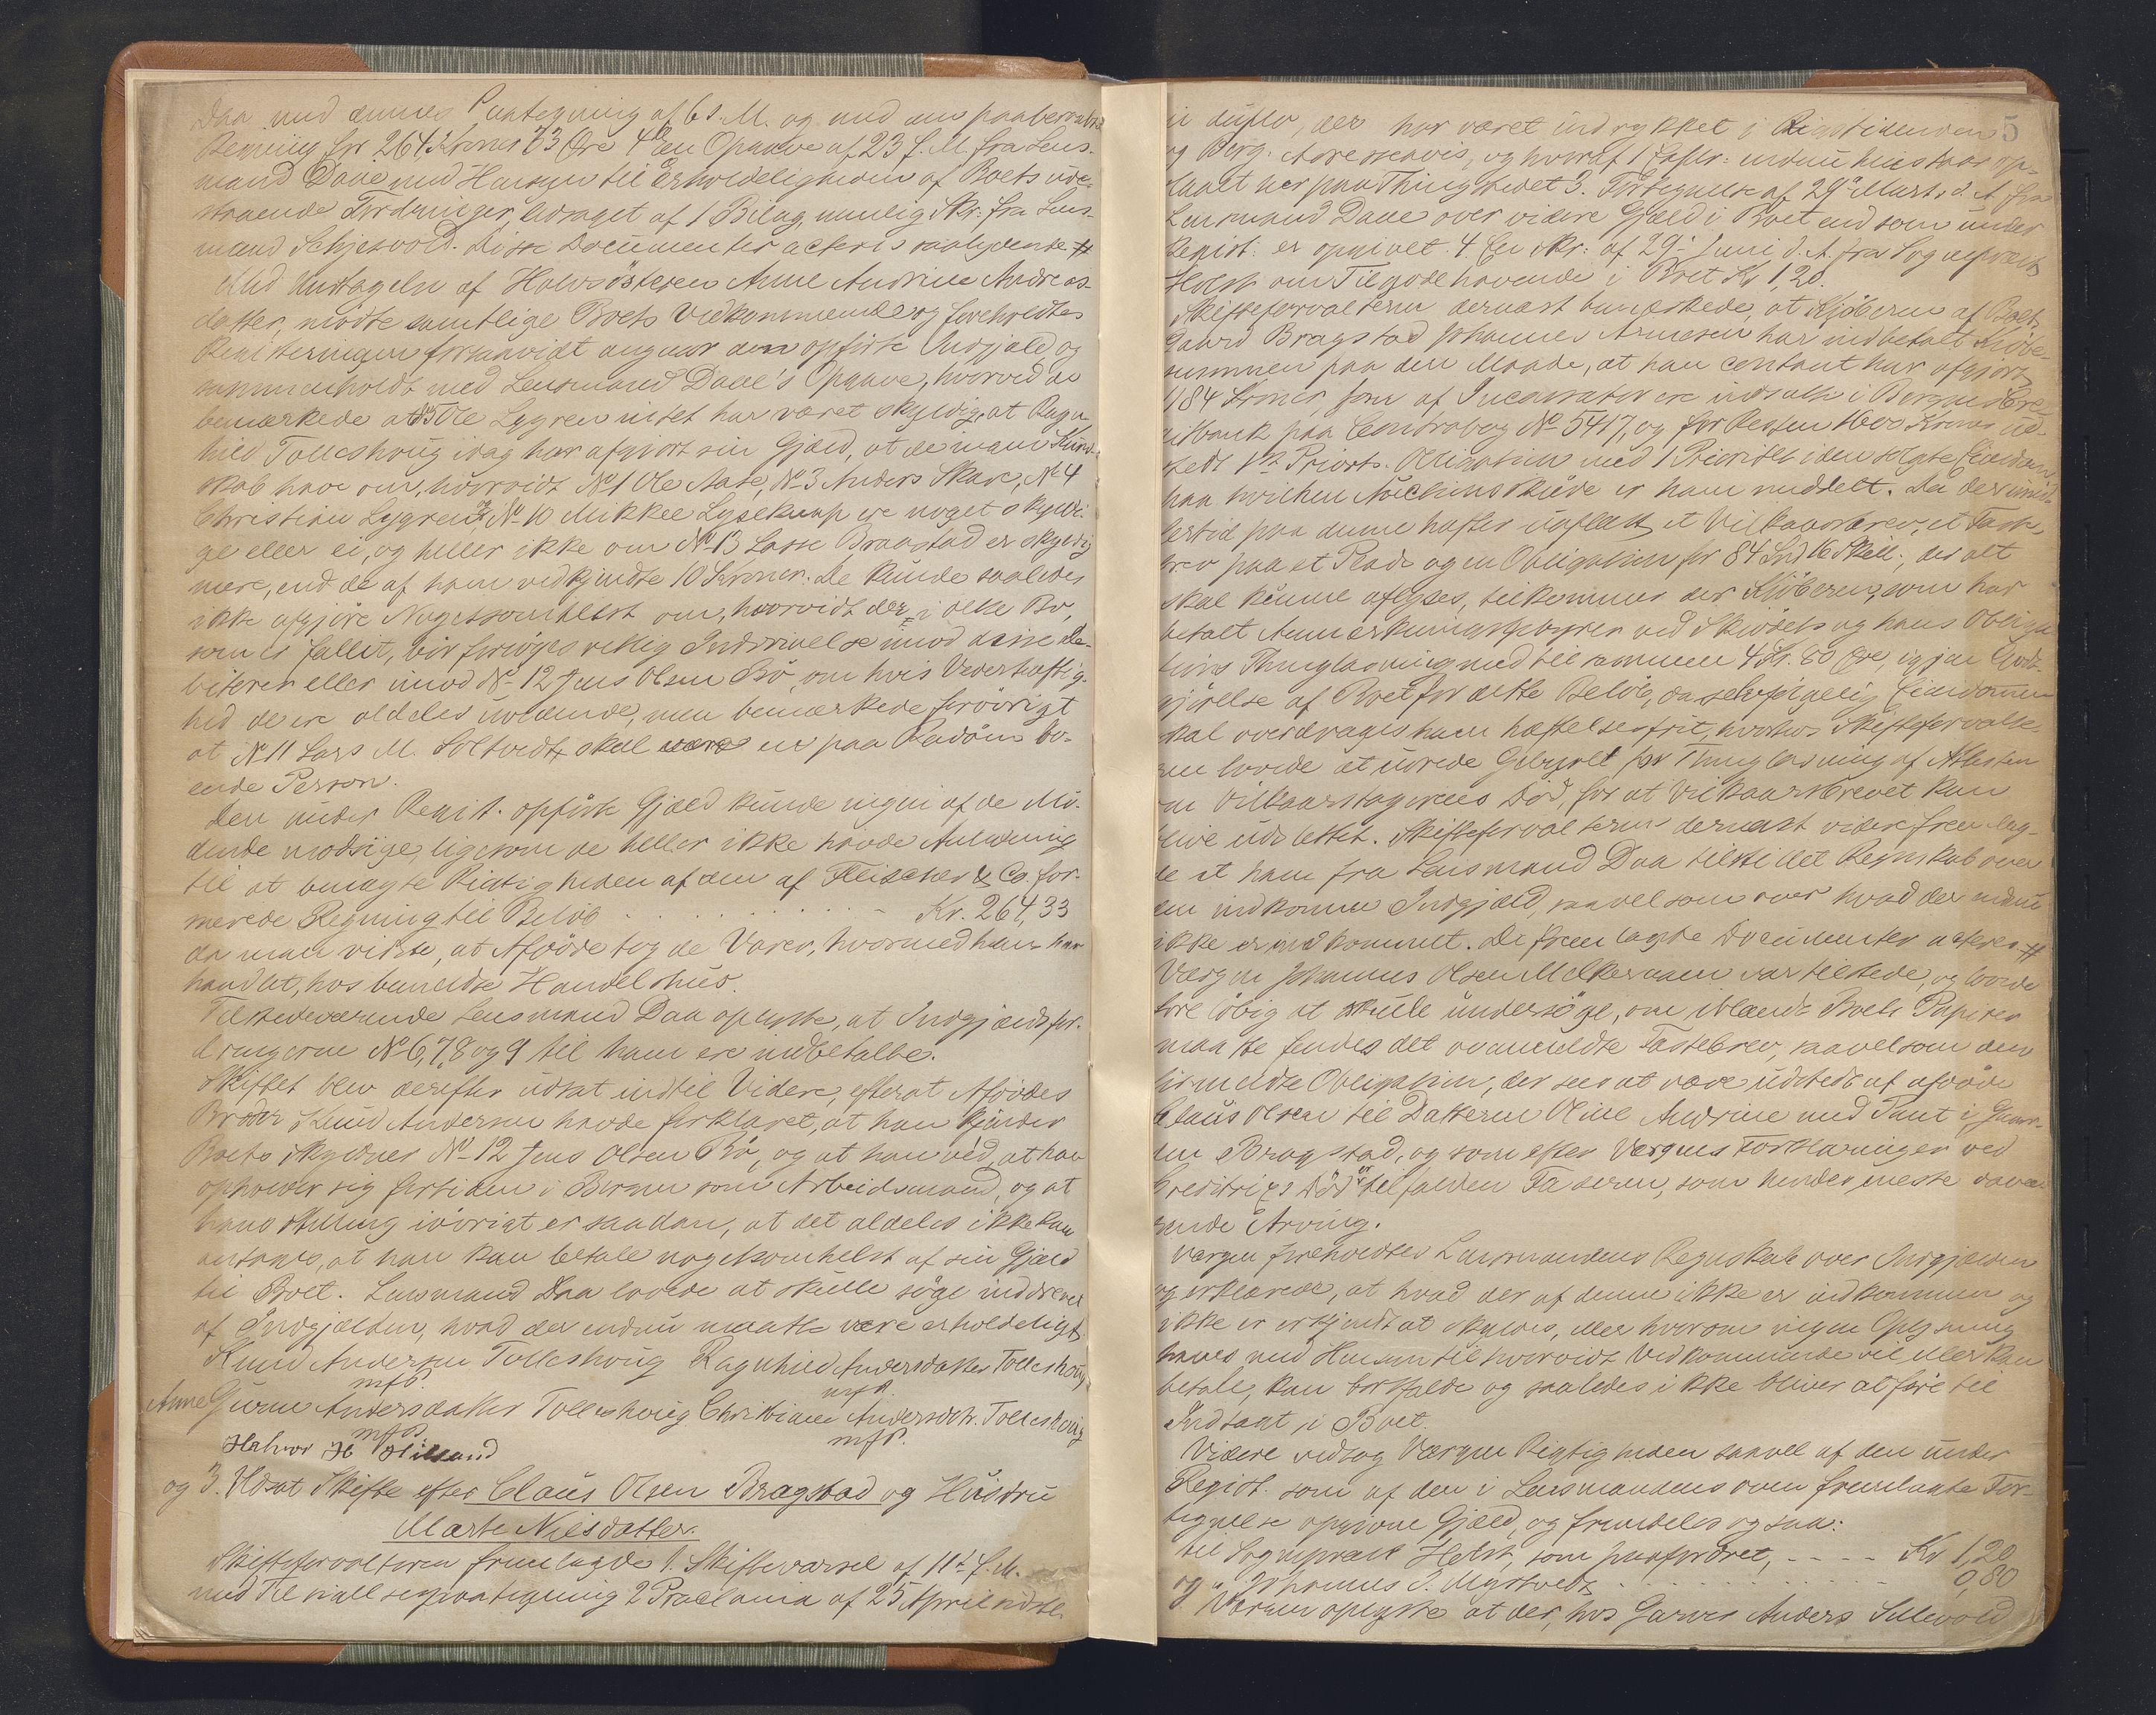 Daa med dennes Paategning af 6 d. M. og med en paaberaabt
Regning for 264 Kroner 33 Øre 4de en Opgave af 23 f. M. fra Lens-
mand Daae med Hensyn til Erholdeligheden af Boets ude-
staaende Fordringer, ledsaget af 1 Bilag, nemlig Skr: fra Lens-
mand Schjesvold. Disse Documenter acteres saalydende #
Med Undtagelse af Halvsösteren Anne Andrine Andreas-
datter, mödte samtlige Boets Vedkommende og foreholdtes
Registeringen forsaavidt angaar den opförte Indgjæld, og
sammenholdt med Lensmand Daae's Opgave, hvorved de
bemærkede at No 5 Ole Lygren intet har været skyldig, at Ragn-
hild Tolleshoug idag har afgjort sin Gjæld, at de mam Kund-
skab have om, hvorvidt No 1 Ole Aase, No 3 Anders Skare, No 4
Christian Lygren og No 10 Mikkel Lyseknap ere noget skyldi-
ge eller ei, og heller ikke om No 13 Lasse Bragstad er skyldig
mere, end de af ham vedkjendte 10 Kroner. De kunde saaledes
ikke afgjöre Nogetsomhelst om, hvorvidt der, i dette Bo,
som er fallit, bör forsöges retlig Inddrivelse imod disse De-
bitorer eller imod No 12 Jens Olsen Bö, om hvis Vederhæftig-
hed de ere aldeles uvidende, men bemærkede forövrigt
at No 11 Lars M. Soltvedt, skal være en paa Radöen bo-
ende Person.
Den under Regist. opförte Gjæld kunde ingen af de Mö-
dende modsige, ligesom de heller ikke havde Anledning
til at benægte Rigtigheden af den af Fleischer & Co. for-
merede Regning til Belöb . . . . . . . . . Kr. 264,33
da man vidste, at Afdöde tog de Varer, hvormed han har
handlet, hos bemeldte Handelshus.
Tilstedeværende Lensmand Daa oplyste, at Indgjældsfor-
dringerne No 6, 7, 8 og 9 til ham ere indbetalte.
Skiftet blev derefter udsat indtil Videre, efterat Afdödes
Broder Knud Andersen havde forklaret, at han kjender
Boets Skyldner No 12 Jens Olsen Bö, og at han ved, at han
opholder sig fortiden i Bergen som Arbeidsmand, og at
hans Stilling iövrigt er saadan, at det aldeles ikke kan
antages, at han kan betale nogetsomhelst af sin Gjæld
til Boet. Lensmand Daa lovede at skulle söge inddrevet
af Indgjælden, hvad der endnu maatte være erholdeligt.
Knud Andersen Tolleshoug Ragnhild Andersdatter Tolleshoug
mfP. mfP.
Anne Gurine Andersdatter Tolleshoug Christiane Andersdtr. Tolleshoug
mfP. mfP.
Halvor H Hilland
og 3. Udsat Skifte efter Claus Olsen Bragstad og Hustru
Marte Nilsdatter.
Skifteforvalteren fremlagde 1. Skiftevarsel af 11te f. M.
med Tilkaldelsespaategning 2 Proclama af 25 April sidstl.
5
in duplo, der har været indrykket i Rigstidenden
og Berg. Adresseavis, og hvoraf 1 Explr: endnu henstaar op-
slaaet her paa Thingstedet 3. Fortegnelse af 29de Marts d. A. fra
Lensmand Daae over videre Gjæld i Boet end som under
Regist: er opgivet. 4. En Skr: af 29de Juni d. A. fra Sognepræst
Holst om Tilgodehavende i Boet Kr 1,20.
Skifteforvalteren dernæst bemærkede, at Kjöberen af Boets
Gaard Bragstad Johannes Arnesen har indbetalt Kjöbe-
summen paa den Maade, at han contant har afgjort
184 Kroner som af Incassator ere indsatte i Bergens Cre-
ditbank paa Contrabog No 5417, og for Resten 1600 Kroner ud-
stedt 1ste Priorts. Obligation med 1 Prioritet i den solgte Eiendom
paa hvilken Auctionsskjöde er ham meddelt. Da der imid-
lertid paa denne hefter uaflæst et Vilkaarsbrev, et Fæste-
brev paa et Plads og en Obligation for 84 Spd 16 Skill:, der alt
skal kunne aflyses, tilkommer der Kjöberen, som har
betalt Anmærkningsgebyrer ved Skjödets og hans Obliga-
tions Thinglæsning med tilsammen 4 Kr. 80 Öre, igjen Godt-
gjörelse af Boet for dette Belöb, da selvfölgelig Eiendommen
skal overdrages ham heftelsesfrit, hvorhos Skifteforvalte-
ren lovede at udrede Gebyret for Thinglæsning af Attesten
om Vilkaarstagerens Död, for at Vilkaarsbrevet kan
blive udslettet. Skifteforvalteren dernæst videre fremlag-
de et ham fra Lensmand Daa tilstillet Regnskab over
den indkomne Indgjæld, saavelsom over hvad der endnu
ikke er indkommet. De fremlagte Documenter acteres #
Værgen Johannes Olsen Mælkeraaen var tilstede, og lovede
forelöbig at skulle undersöge, om iblandt Boets Papirer
maatte findes det ovenmeldte Fæstebrev, saavelsom den
formeldte Obligation, der sees at være udstedt af afdöde
Claus Olsen til Datteren Oline Andrine med Pant i Gaar-
den Bragstad, og som efter Værgens Forklaringer ved
Creditrices Död er tilfalden Faderen, som hendes eneste davæ-
rende Arving.
Værgen foreholdtes Lensmandens Regnskab over Indgjælden
og erklærede, at hvad der af denne ikke er indkommen og
ikke er erkjendt at skyldes, eller hvorom ingen Oplysning
haves med Hensyn til hvorvidt Vedkommende vil eller kan
betale, kan bortfalde og saaledes ikke bliver at före til
Indtægt i Boet.
Videre vedtog Værgen Rigtigheden saavel af den under
Regist. som af den i Lensmandens oven fremlagte For-
tegnelse opgivne Gjæld, og fremdeles ogsaa:
til Sognepræst Holst, som paafordret, - - - - Kr. 1,20
og " Johannes I. Mystvedt . . . . . . . . 0,80
Værgen oplyste at der, hos Garver Anders Sillevold